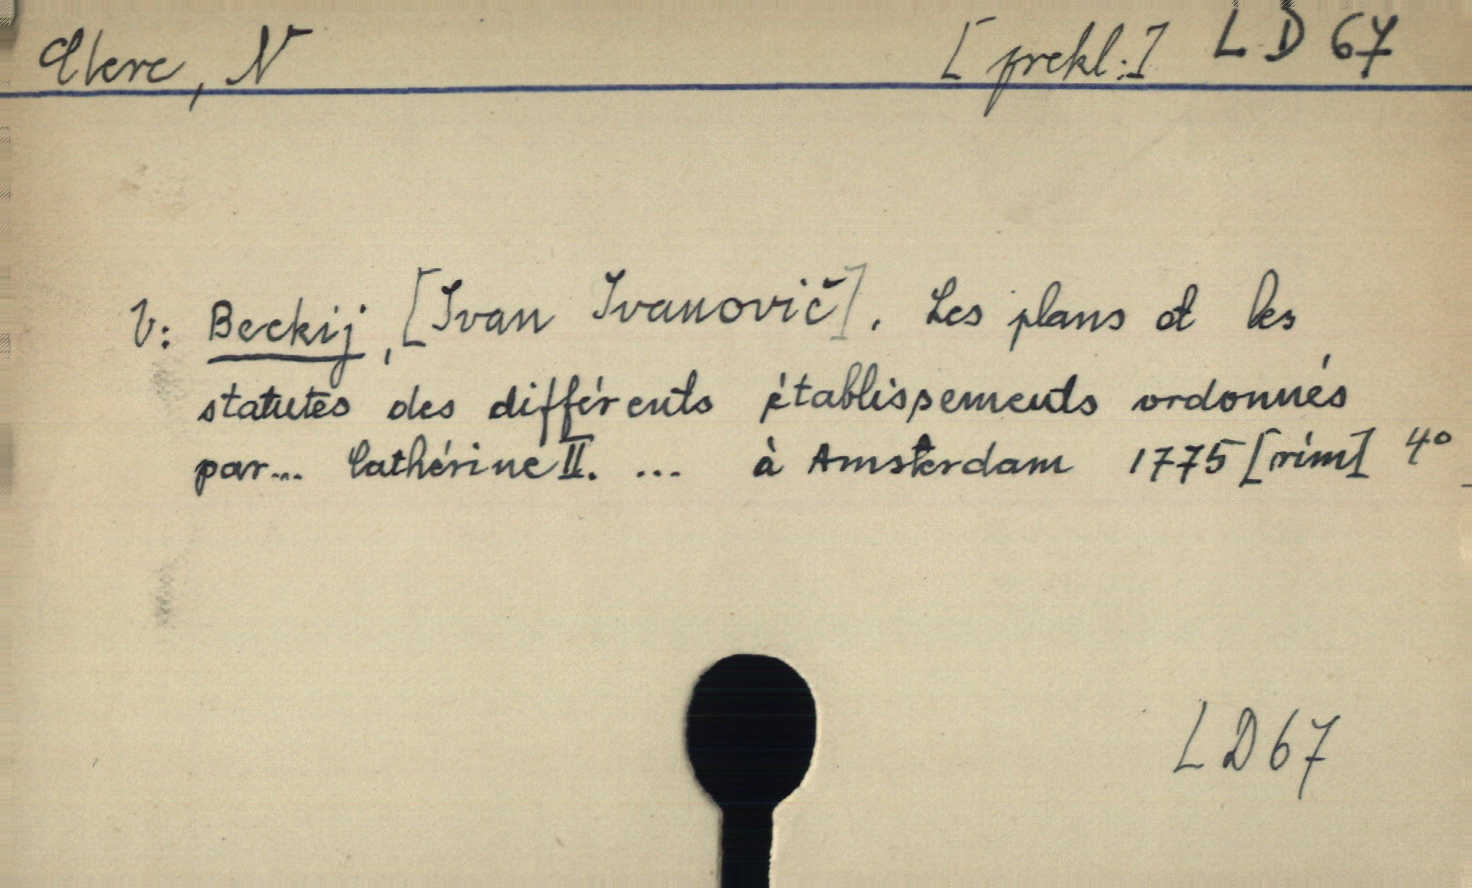 Clerc, N [prekl.] LD 67
V: Beckij, [Ivan Ivanovič]. Les plans et les
statutes des différents établissements ordonnés
par... Cathérine II. ... à Amsterdam 1775 [rím] 4°
LD67